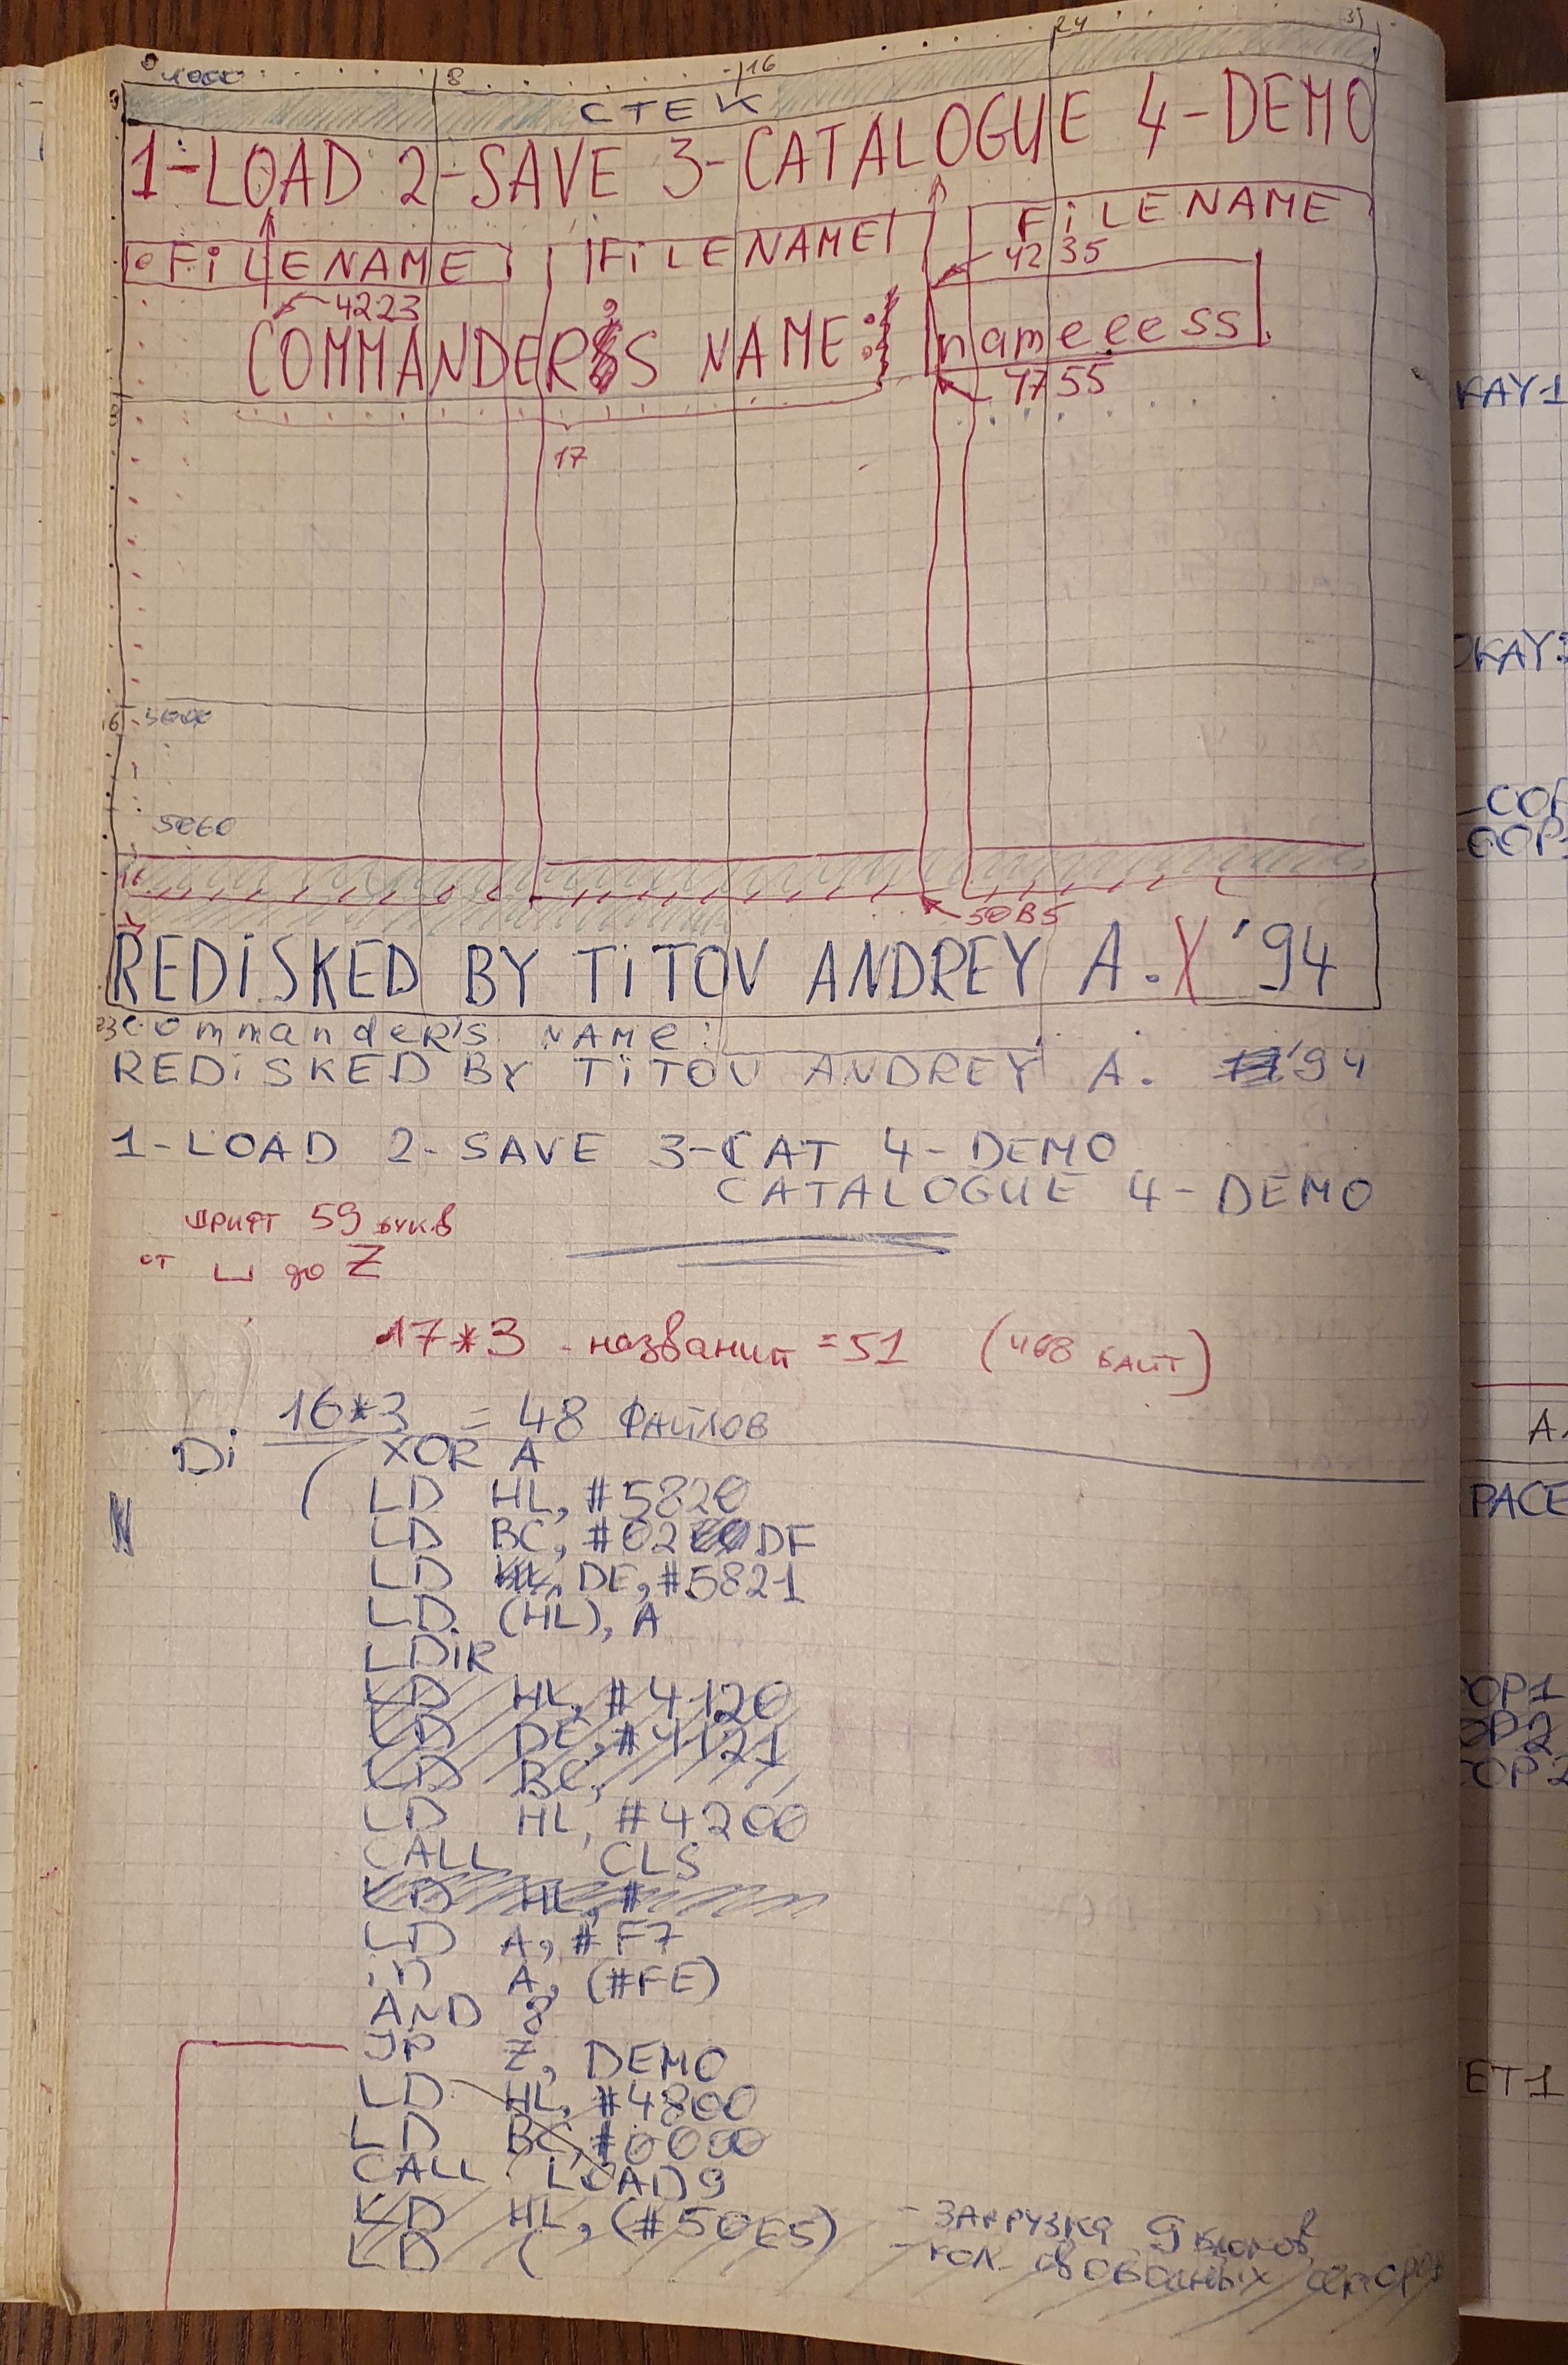 0 4000 8 16 24 31
СТЕК
1-LOAD 2-SAVE 3-CATALOGUE 4-DEMO
FiLENAME FiLENAME FiLENAME
4223 4235
COMMANDER'S NAME: nameeess
4755
17
16 5000
5060
50B5
REDiSKED BY TiTOV ANDREY A. X '94
23 commandeR's NAMe:
REDiSKED BY TiTOV ANDREY A. '94
1-LOAD 2-SAVE 3-CAT 4-DEMO
CATALOGUE 4-DEMO
шрифт 59 букв
от ␣ до Z
17*3 - названий =51 (408 байт)
16*3 = 48 файлов
Di XOR A
LD HL, #5820
LD BC, #02DF
LD DE, #5821
LD (HL), A
LDiR
LD HL, #4120
LD DE, #4121
LD BC,
LD HL, #4200
CALL CLS
LD HL, #
LD A, #F7
iN A, (#FE)
AND 8
JP Z, DEMO
LD HL, #4800
LD BC, #0000
CALL LOAD9
LD HL, (#50E5) - загрузка 9 блоков
LD ( - кол. свободных секторов
KAY1
OKAY
COP
OOP
PACE
OP1
OP2
OP2
ET1